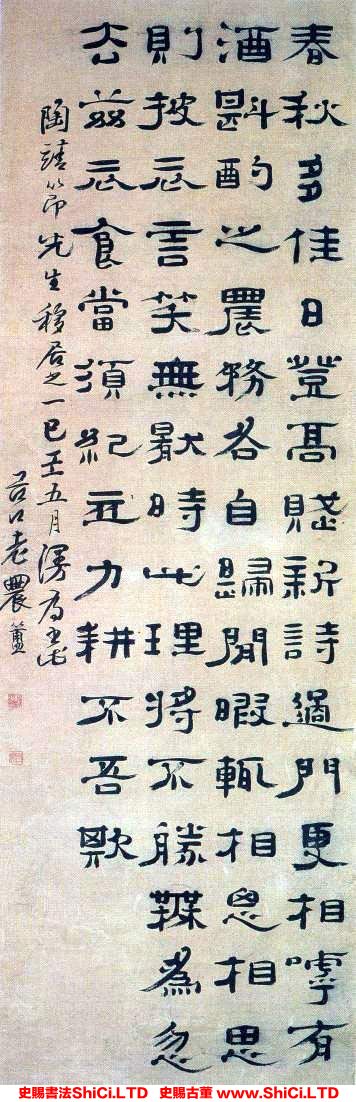 春秋多佳日登高賦新詩過門更相嘑有
酒斟酌之農務各自歸閒暇輒相思相思
則披衣言笑無厭時此理將不勝為忽
去茲衣食當須紀力耕不吾欺
陶靖節先生移居之一 五月漫為
谷口老農簠
史賜書法ShiCi.LTD 史賜古董 www.ShiCi.LTD